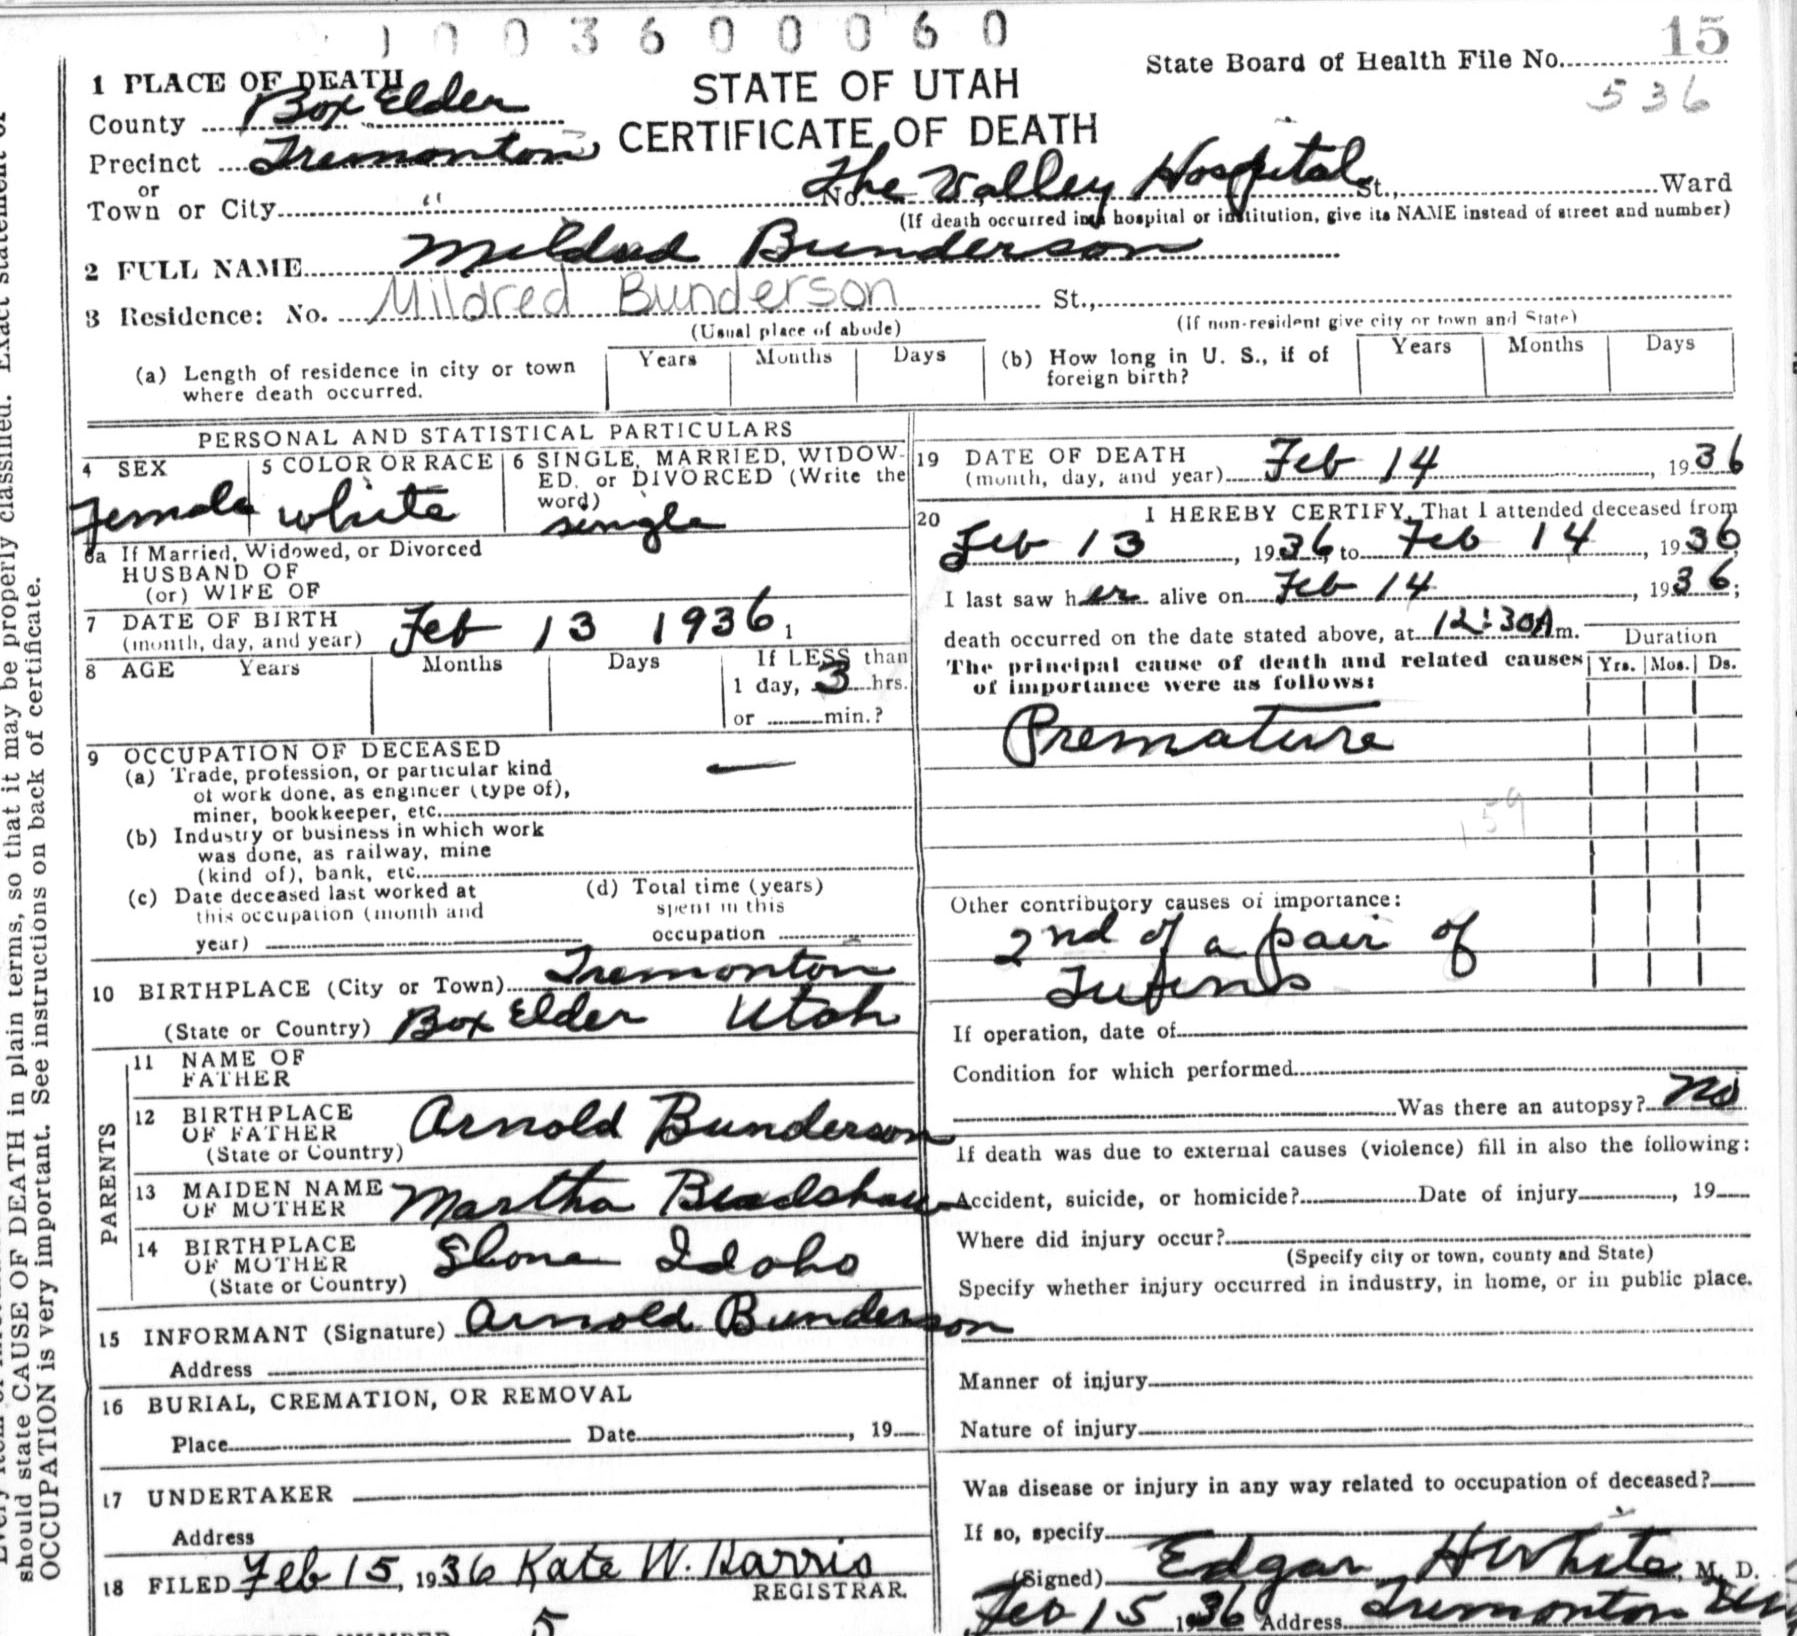 1003600060
15
State Board of Health File No.
536
1 PLACE OF DEATH
STATE OF UTAH
County Box Elder
CERTIFICATE OF DEATH
Precinct Tremonton
or
Town or City " No. The Valley Hospital St., Ward
(If death occurred in a hospital or institution, give its NAME instead of street and number)
2 FULL NAME Mildred Bunderson
3 Residence: No. Mildred Bunderson St.,
(Usual place of abode) (If non-resident give city or town and State)
(a) Length of residence in city or town where death occurred. Years Months Days (b) How long in U. S., if of foreign birth? Years Months Days
PERSONAL AND STATISTICAL PARTICULARS
4 SEX Female
5 COLOR OR RACE white
6 SINGLE, MARRIED, WIDOW-
ED, or DIVORCED (Write the
word) single
6a If Married, Widowed, or Divorced
HUSBAND OF
(or) WIFE OF
7 DATE OF BIRTH
(month, day, and year) Feb 13 1936 1
8 AGE Years Months Days If LESS than
1 day, 3 hrs.
or min.?
9 OCCUPATION OF DECEASED
(a) Trade, profession, or particular kind
of work done, as engineer (type of),
miner, bookkeeper, etc.
(b) Industry or business in which work
was done, as railway, mine
(kind of), bank, etc.
(c) Date deceased last worked at
this occupation (month and
year)
(d) Total time (years)
spent in this
occupation
10 BIRTHPLACE (City or Town) Tremonton
(State or Country) Box Elder Utah
PARENTS
11 NAME OF
FATHER
12 BIRTHPLACE
OF FATHER Arnold Bunderson
(State or Country)
13 MAIDEN NAME
OF MOTHER Martha Bradshaw
14 BIRTHPLACE
OF MOTHER Idaho
(State or Country)
15 INFORMANT (Signature) Arnold Bunderson
Address
16 BURIAL, CREMATION, OR REMOVAL
Place Date , 19
17 UNDERTAKER
Address
18 FILED Feb 15, 1936 Kate W. Harris
REGISTRAR.
5
19 DATE OF DEATH
(month, day, and year) Feb 14 , 1936
20 I HEREBY CERTIFY, That I attended deceased from
Feb 13 , 1936, to Feb 14 , 1936,
I last saw her alive on Feb 14 , 1936;
death occurred on the date stated above, at 12:30 A m.
Duration
The principal cause of death and related causes
of importance were as follows:
Yrs. Mos. Ds.
Premature
159
Other contributory causes of importance:
2nd of a pair of
If operation, date of
Condition for which performed
Was there an autopsy? No
If death was due to external causes (violence) fill in also the following:
Accident, suicide, or homicide? Date of injury , 19
Where did injury occur?
(Specify city or town, county and State)
Specify whether injury occurred in industry, in home, or in public place.
Manner of injury
Nature of injury
Was disease or injury in any way related to occupation of deceased?
If so, specify
(Signed) Edgar H White, M. D.
Feb 15 1936 Address Tremonton
should state CAUSE OF DEATH in plain terms, so that it may be properly classified. Exact statement of
OCCUPATION is very important. See instructions on back of certificate.